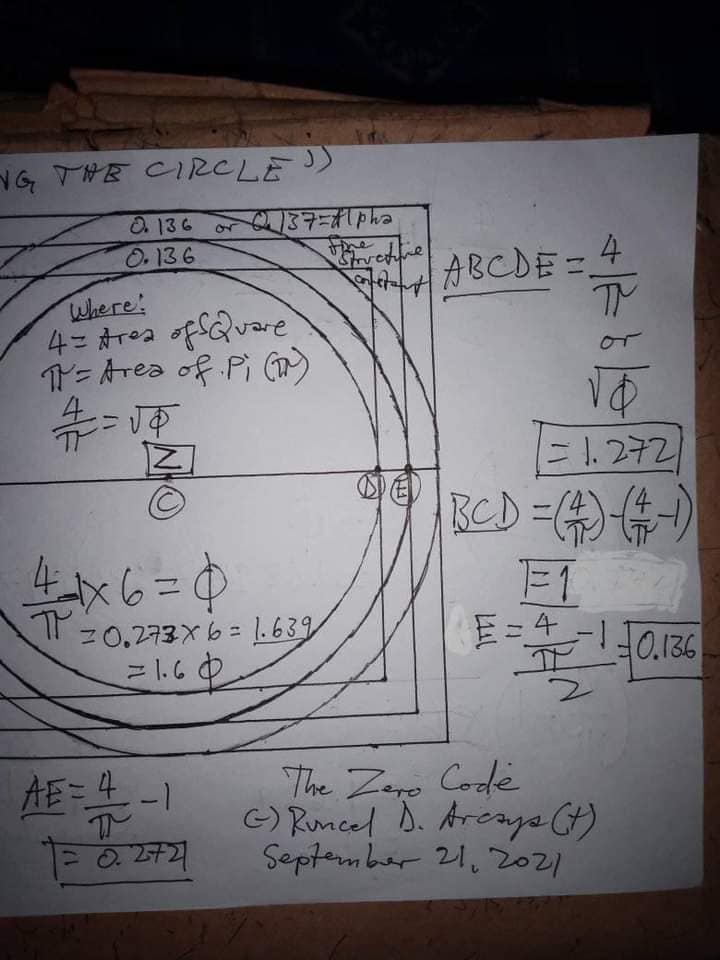 NG THE CIRCLE"
0.136 or 0.137=Alpha
fine
structure
constant
0.136
Where:
4 = Area of SQuare
π = Area of Pi (π)
4/π = √φ
Z
C
D E
4/π -1 x 6 = φ
= 0.273 x 6 = 1.639
= 1.6 φ
ABCDE = 4/π
or
√φ
= 1.272
BCD = (4/π)-(4/π-1)
= 1
E = 4/π -1 = 0.136
2
AE = 4/π - 1
= 0.272
The Zero Code
(-) Runcel D. Arcaya (+)
September 21, 2021